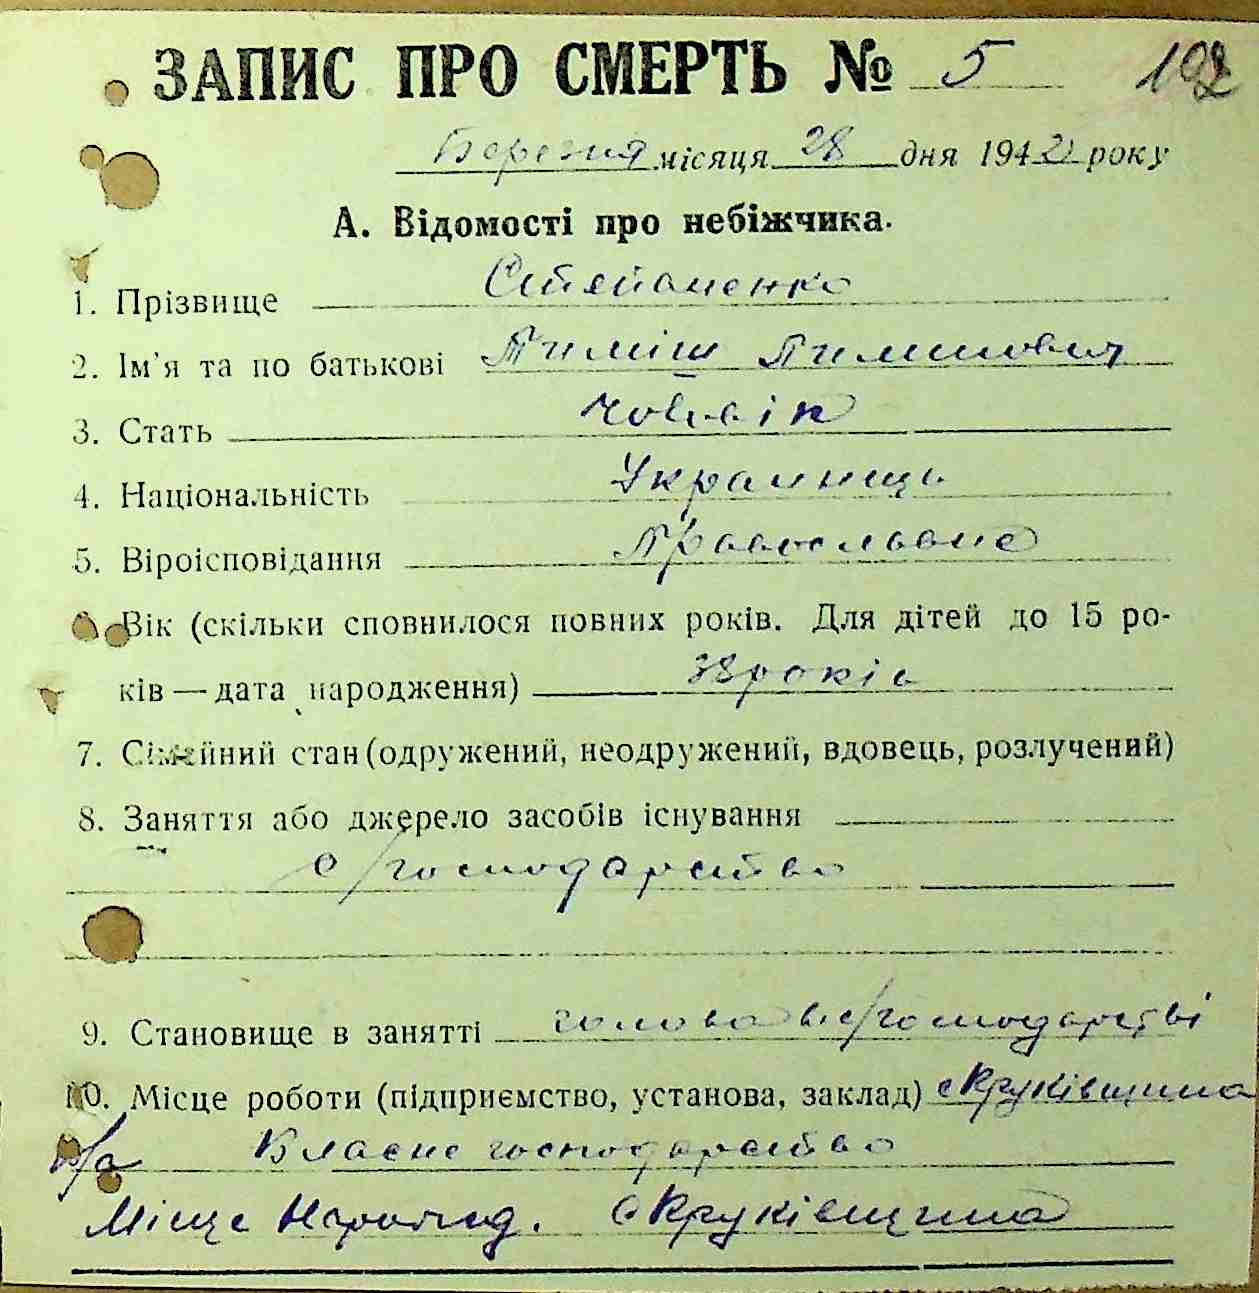 ЗАПИС ПРО СМЕРТЬ № 5 102
Березня місяця 28 дня 1942 року
А. Відомості про небіжчика.
1. Прізвище Степаненко
2. Ім'я та по батькові Тиміш Тимишович
3. Стать Чоловік
4. Національність Українець
5. Віроісповідання Православне
Вік (скільки сповнилося повних років. Для дітей до 15 ро-
ків — дата народження) 38 років
7. Сімейний стан (одружений, неодружений, вдовець, розлучений)
8. Заняття або джерело засобів існування
с/господарство
9. Становище в занятті голова в с/господарстві
10. Місце роботи (підприємство, установа, заклад) с Круківщина
Власне господарство
Місце Народ. с Круківщина